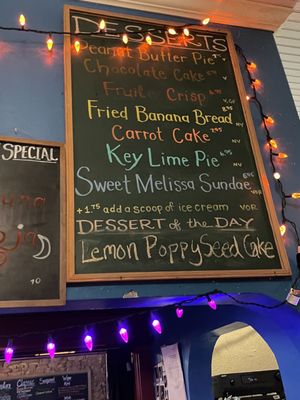 DESSERTS
Peanut Butter Pie V
Chocolate Cake V
Fruit Crisp V, GF
Fried Banana Bread 8.95 NV
Carrot Cake 7.95 NV
Key Lime Pie 6.95 NV
Sweet Melissa Sundae 8.95 VOR
+1.75 add a scoop of ice cream VOR
DESSERT of the DAY
Lemon Poppy Seed Cake
SPECIAL
10